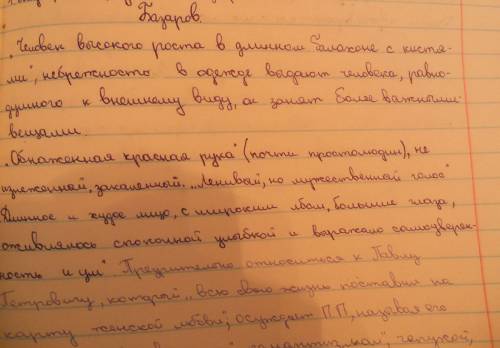 Базаров.
„Человек высокого роста в длинном балахоне с кистя-
ми", небрежность в одежде выдают человека, равно-
душного к внешнему виду, он занят более важными
вещами.
„Обнаженная красная рука" (почти простолюдин), не
изнеженной, закаленный. „Ленивый, но мужественной голос"
Длинное и худое лицо, с широким лбом, большие глаза,
оживлялось спокойной улыбкой и воражало самоуверен-
ность и ум". Презрительно относиться к Павлу
Петровичу, который „всю свою жизнь поставил на
карту женской любви", осуждает П.П, называя его
"романтизмом", чепухой,